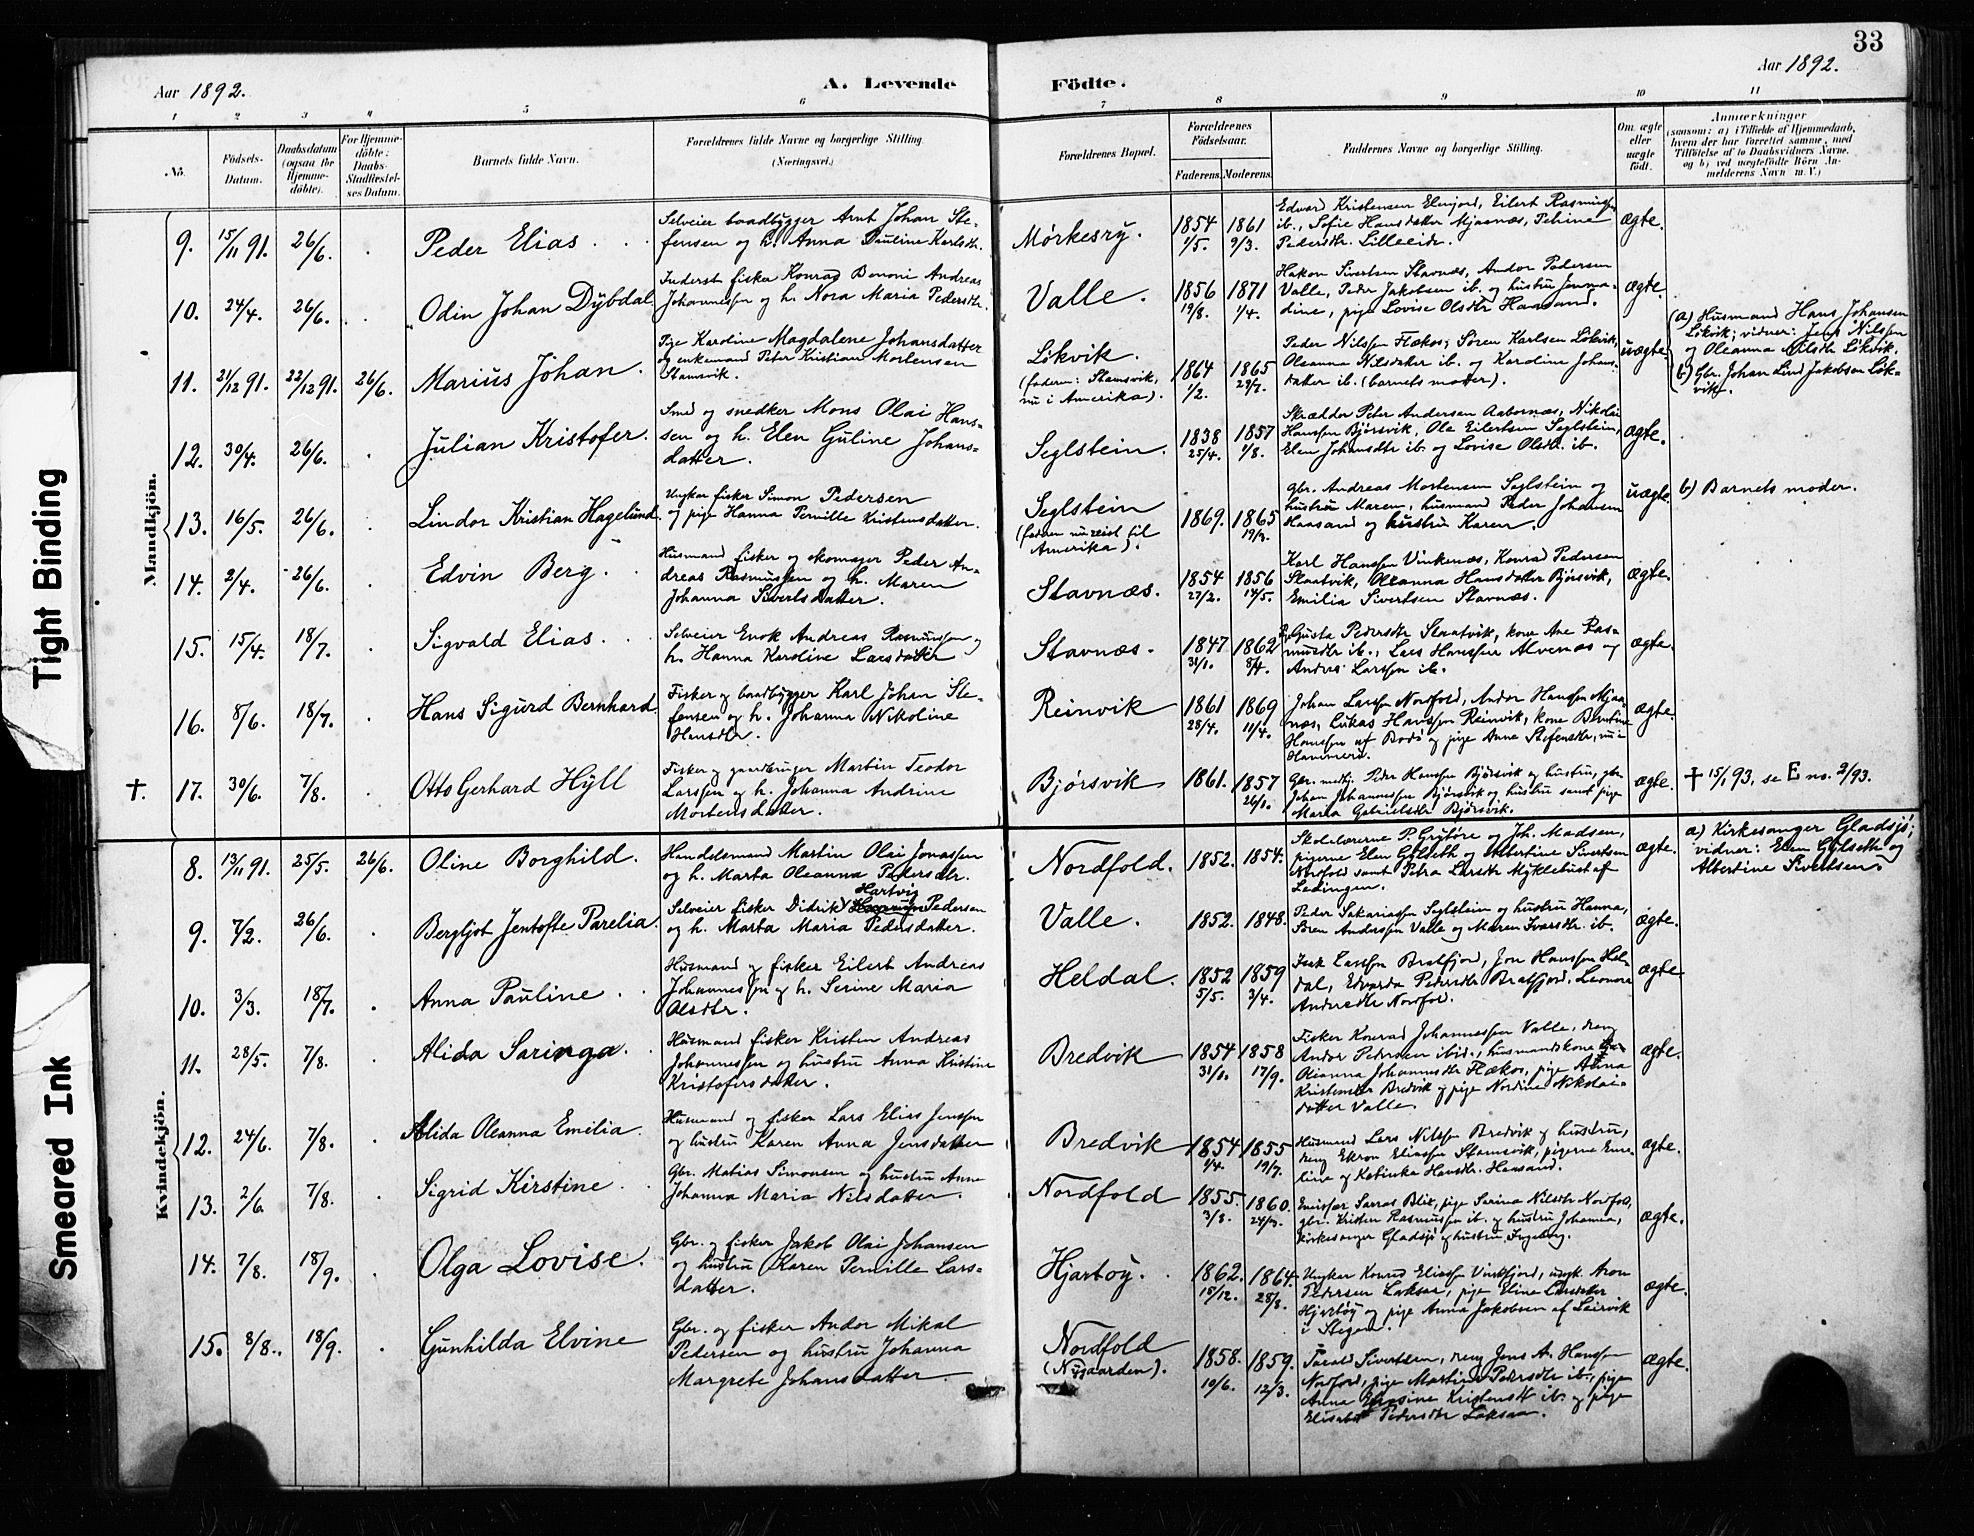 33
Aar 1892.
A. Levende Födte.
Aar 1892.
1 2 3 4 5 6 7 8 9 10 11
No.
Födsels-Datum.
Daabsdatum (ogsaa for Hjemme-döbte).
For Hjemme-döbte: Daabs-Stadfæstel-ses Datum.
Barnets fulde Navn.
Forældrenes fulde Navne og borgerlige Stilling. (Næringsvei.)
Forældrenes Bopæl.
Forældrenes Födselsaar.
Faderens. Moderens.
Faddernes Navne og borgerlige Stilling.
Om ægte eller uægte födt.
Anmærkninger
(saasom: a) i Tilfælde af Hjemmedaab, hvem der har forrettet samme, med Tilföielse af to Daabsvidners Navne, og b) ved uægtefödte Börn Anmelderens Navn m. V.)
Mandkjön.
9. 15/11 91. 26/6. Peder Elias.
Selveier baadbygger Arnt Johan Ste-
fensen og h. Anna Pauline Karlsdtr.
Mørkesry. 1854 1/5. 1861 9/3.
Edvard Kristensen Elvejord, Eilert Rasmussen
ib., Sofie Hansdatter Mjaanæs, Petrine
Pedersdtr. Lilleeide.
ægte.
10. 24/4. 26/6. Odin Johan Dÿbdal
Inderst fisker Konrad Benoni Andreas
Johannessen og h. Nora Maria Pedersdtr.
Valle. 1856 19/8. 1871 1/4.
Hakon Sivertsen Stavnæs, Andor Pedersen
Valle, Peder Jakobsen ib. og hustru Jenna-
dine, pige Lovise Olsdtr Haasand.
ægte.
11. 21/12 91. 22/12 91. 26/6. Marius Johan.
Pige Karoline Magdalene Johansdatter
og enkemand Peter Kristian Mortensen
Stamsvik.
Løkvik. (faderen: Stamsvik, nu i Amerika). 1864 1/2. 1865 29/7.
Peder Nilssen Flækos, Sören Karlsen Lökvik,
Oleanna Nilsdatter ib. og Karoline Johans-
datter ib. (barnets moder).
uægte
(a) Husmand Hans Johansen
Lökvik; vidner: Jens Nilssen
og Oleanna Nilsdtr Lökvik.
b) Gbr. Johan Lind Jakobsen Løk-
vik.
12. 30/4. 26/6. Julian Kristofer.
Smed og snedker Mons Olai Hans-
sen og h. Elen Guline Johans-
datter.
Seglstein. 1838 25/4. 1857 1/8.
Skrædder Peter Andersen Aabornæs, Nikolai
Hanssen Bjørsvik, Ole Eilertsen Seglstein,
Elen Johansdtr ib. og Lovise Olsdtr. ib.
ægte.
13. 16/5. 26/6. Lindor Kristian Hagelund
Ungkar fisker Simon Pedersen
og pige Hanna Pernille Kristensdatter.
Seglstein (faderen nu reist til Amerika). 1869. 1865 19/3.
Gbr. Andreas Mortensen Seglstein og
hustru Maren, husmand Peder Johansen
Haasand og hustru Karen.
uægte
b) Barnets moder.
14. 2/4. 26/6. Edvin Berg.
Husmand fisker og skomager Peder An-
dreas Rasmussen og h. Maren
Johanna Sivertsdatter.
Stavnæs. 1854 27/2. 1856 14/5.
Karl Hanssen Vinkenæs, Konrad Pedersen
Staatvik, Oleanna Hansdatter Bjørsvik,
Emilia Sivertsen Stavnæs.
ægte.
15. 15/4. 18/7. Sigvald Elias.
Selveier Enok Andreas Rasmussen og
h. Hanna Karoline Larsdatter
Stavnæs. 1847 31/1. 1862 8/4.
Gusta Pedersdtr Staatvik, kone Ane Ras-
musdtr ib., Lars Hanssen Alvenæs og
Andreas Larssen ib.
ægte.
16. 8/6. 18/7. Hans Sigurd Bernhard.
Fisker og baadbygger Karl Johan Ste-
fensen og h. Johanna Nikoline
Hansdtr.
Reinvik 1861 28/4. 1869 11/4.
Johan Larssen Nordfold, Andor Hanssen Mjaa-
næs, Lukas Hanssen Reinvik, kone Berntine
Hanssen af Bodø og pige Anna Stefensdtr, nu i
Hammerø.
ægte.
✝. 17. 30/6. 7/8. Otto Gerhard Hyll
Fisker og gaardbruger Martin Teodor
Larssen og h. Johanna Andrine
Mortensdatter.
Bjørsvik 1861. 1857 26/1.
Gbr. medhj. Peder Hanssen Bjørsvik og hustru, gbr
Johan Johannessen Bjørsvik og hustru samt pige
Marta Gabrielsdtr Bjørsvik.
ægte.
✝ 15/1 93, se E no. 2/93.
Kvindekjön.
8. 13/11 91. 25/5. 26/6. Oline Borghild.
Handelsmand Martin Olai Jonassen
og h. Marta Oleanna Pedersdtr.
Nordfold. 1852. 1854.
Skolelærerne P. Grytöre og Joh. Madsen,
pigerne Elen Gylseth og Albertine Sivertsen
Nordfold samt Petra Larsdtr Myklebust af
Lødingen.
ægte.
a) Kirkesanger Gladsjø;
vidner: Elen Gylseth og
Albertine Sivertsen.
9. 7/2. 26/6. Bergljot Jentofte Parelia.
Hartvig
Selveier fisker Didrik Pedersen
og h. Marta Maria Pedersdatter.
Valle. 1852. 1848.
Peder Sakariassen Seglstein og hustru Hanna,
Sören Anderssen Valle og Maren Ivarsdtr. ib.
ægte.
10. 3/3. 18/7. Anna Pauline.
Husmand og fisker Eilert Andreas
Johannessen og h. Serine Maria
Olsdtr.
Heldal. 1852 5/5. 1859 3/4.
Isak Larssen Bratfjord, Jon Hanssen Hel-
dal, Edvarda Pedersdtr Bratfjord, Leonore
Andersdtr Nordfold.
ægte
11. 28/5. 7/8. Alida Saringa.
Husmand fisker Kristen Andreas
Johannessen og hustru Anna Kristine
Kristofersdatter.
Bredvik 1854 31/1. 1858 17/9.
Fisker Konrad Johannessen Valle, dreng
Andor Pedersen ibid., husmandskone
Oleanna Johannesdtr Flækos, pige Anna
Kristensdtr Bredvik og pige Nordine Nikolai-
datter Valle.
ægte.
12. 24/6. 7/8. Alida Oleanna Emilia.
Husmand og fisker Lars Elias Jenssen
og hustru Karen Anna Jensdatter
Bredvik 1854 9/4. 1855 19/7.
Husmand Lars Nilssen Bredvik og hustru,
dreng Ekron Eliassen Stamsvik, pigerne Eme-
line og Katinka Hansdtr. Haasand.
ægte.
13. 2/6. 7/8. Sigrid Kirstine.
Gbr. Matias Simonsen og hustru Anne
Johanna Maria Nilsdatter.
Nordfold 1855. 3/8. 1860. 24/3.
Emissær Sarras Blix, pige Sarina Nilsdtr Nordfold,
gbr. Kristen Rasmussen ib. og hustru Johanna,
kirkesanger Gladsjø og hustru Ingeborg.
ægte.
14. 7/8. 18/9. Olga Lovise.
Gbr. og fisker Jakob Olai Johansen
og hustru Karen Pernille Lars-
datter.
Hjartøy. 1862. 15/12. 1864. 28/8.
Ungkar Konrad Eliassen Vinkfjord, ungk. Aron
Pedersen Laksaa, pige Eline Larsdatter
Hjartøy og pige Anna Jakobsen af Leirvik
i Steigen.
ægte.
15. 8/8. 18/9. Gunhilda Elvine
Gbr. og fisker Andor Mikal
Pedersen og hustru Johanna
Margrete Johansdatter.
Nordfold (Nygaarden). 1858. 10/6. 1859. 12/3.
Tarald Sivertsen, dreng Jens A. Hanssen
Nordfold, pige Martine Pedersdtr ib., pige
Anna Elvesine Kristensdtr ib. og pige
Elisabet Pedersdtr Laksaa.
ægte.
Tight Binding
Smeared Ink